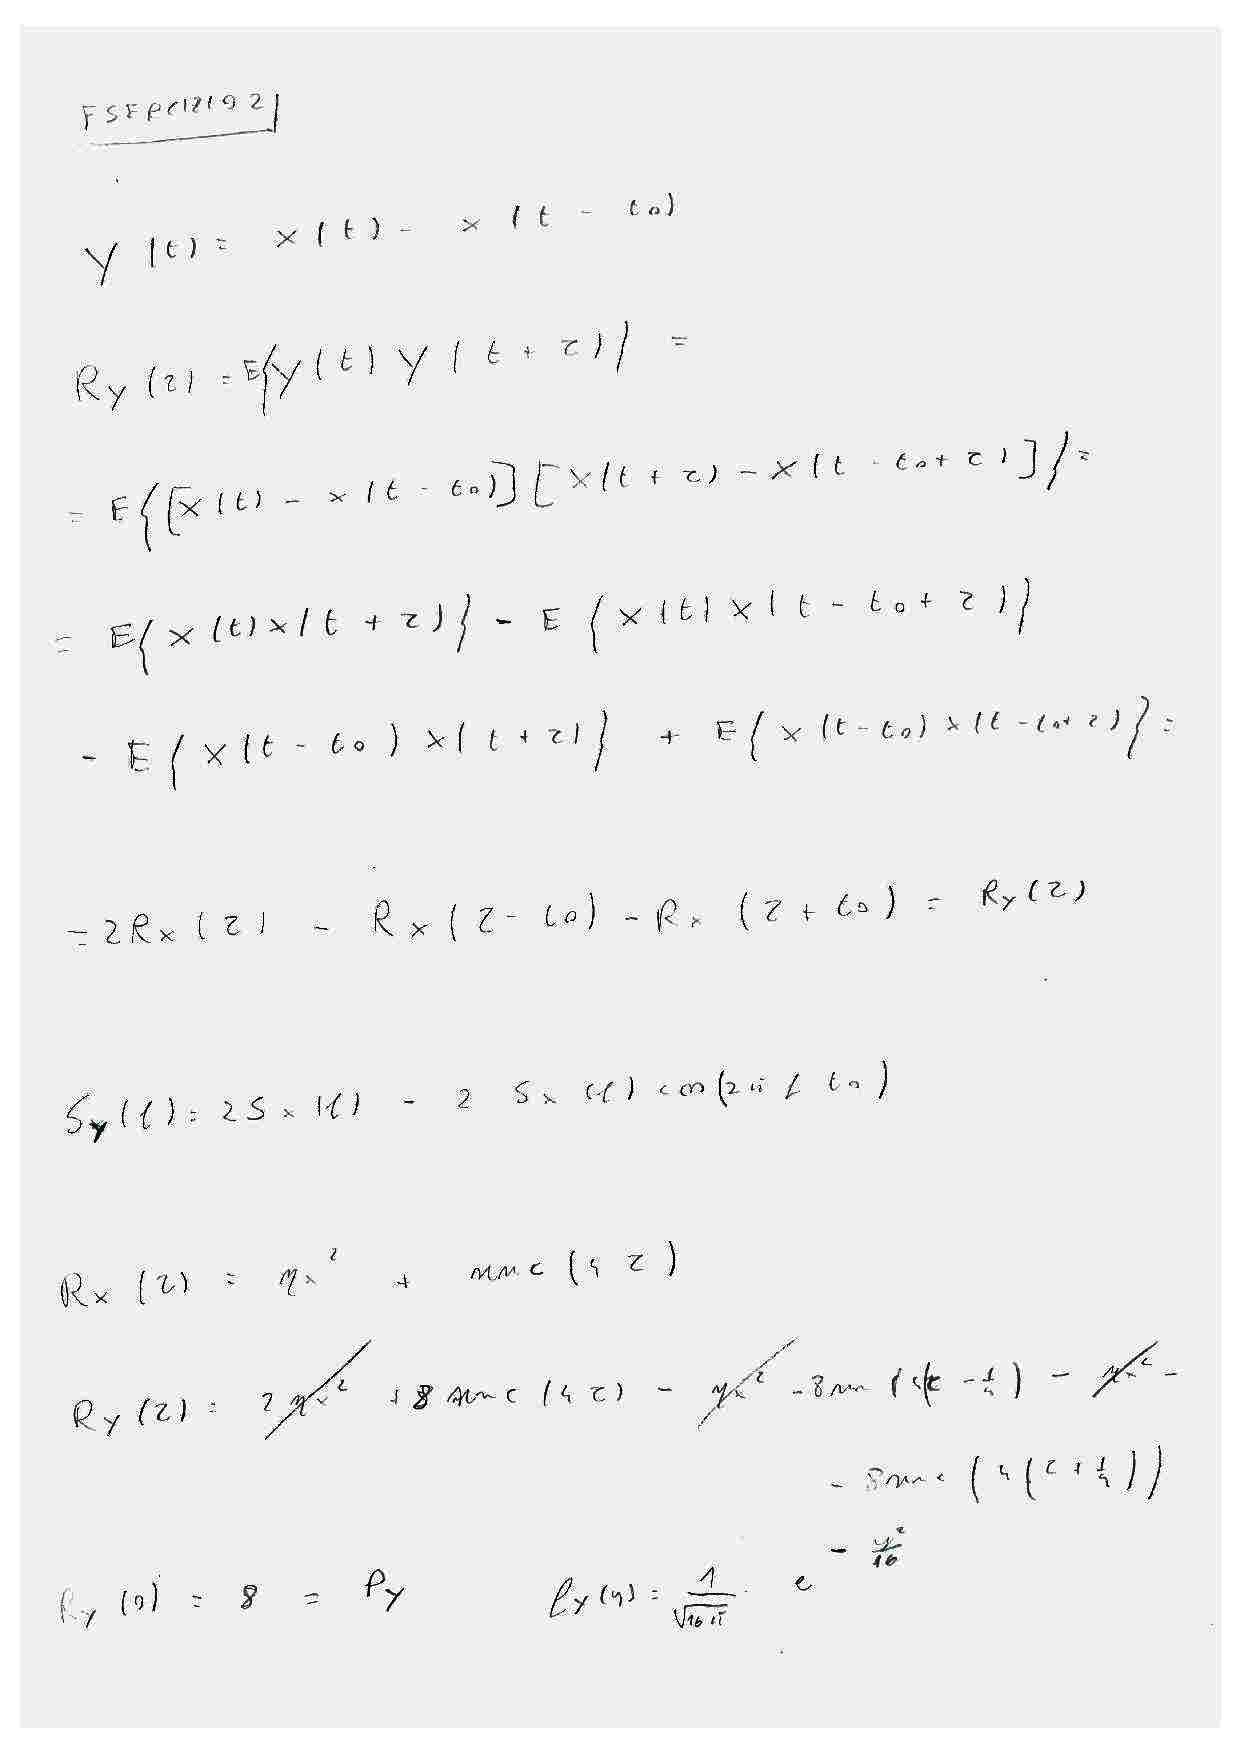 Y(t) = x(t) - x(t - t0)
Ry(τ) = E{Y(t) Y(t + τ)} =
= E{[x(t) - x(t - t0)][x(t + τ) - x(t - t0 + τ)]} =
= E{x(t) x(t + τ)} - E{x(t) x(t - t0 + τ)}
- E{x(t - t0) x(t + τ)} + E{x(t - t0) x(t - t0 + τ)} =
= 2Rx(τ) - Rx(τ - t0) - Rx(τ + t0) = Ry(τ)
Sy(f) = 2Sx(f) - 2 Sx(f) cos(2π f t0)
Rx(τ) = ηx² + sinc(4 τ)
Ry(τ) = 2ηx² + 8 sinc(4τ) - ηx² - - ηx² -
- 8sinc(4(τ + 1/4))
Ry(0) = 8 = Py fy(y) = 1/√16π · e^(- y²/16)